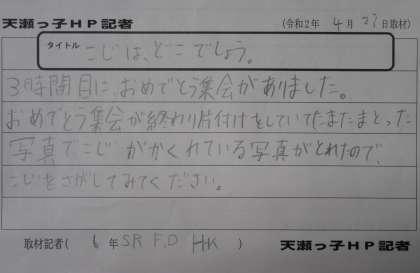 天瀬っ子HP記者 (令和2年 4月 27日取材)
タイトル こじは、どこでしょう。
3時間目に、おめでとう集会がありました。
おめでとう集会が終わり片付けをしていてたまたまとった
写真でこじがかくれている写真がとれたので、
こじをさがしてみてください。
取材記者( 6年 SR F.D HK ) 天瀬っ子HP記者